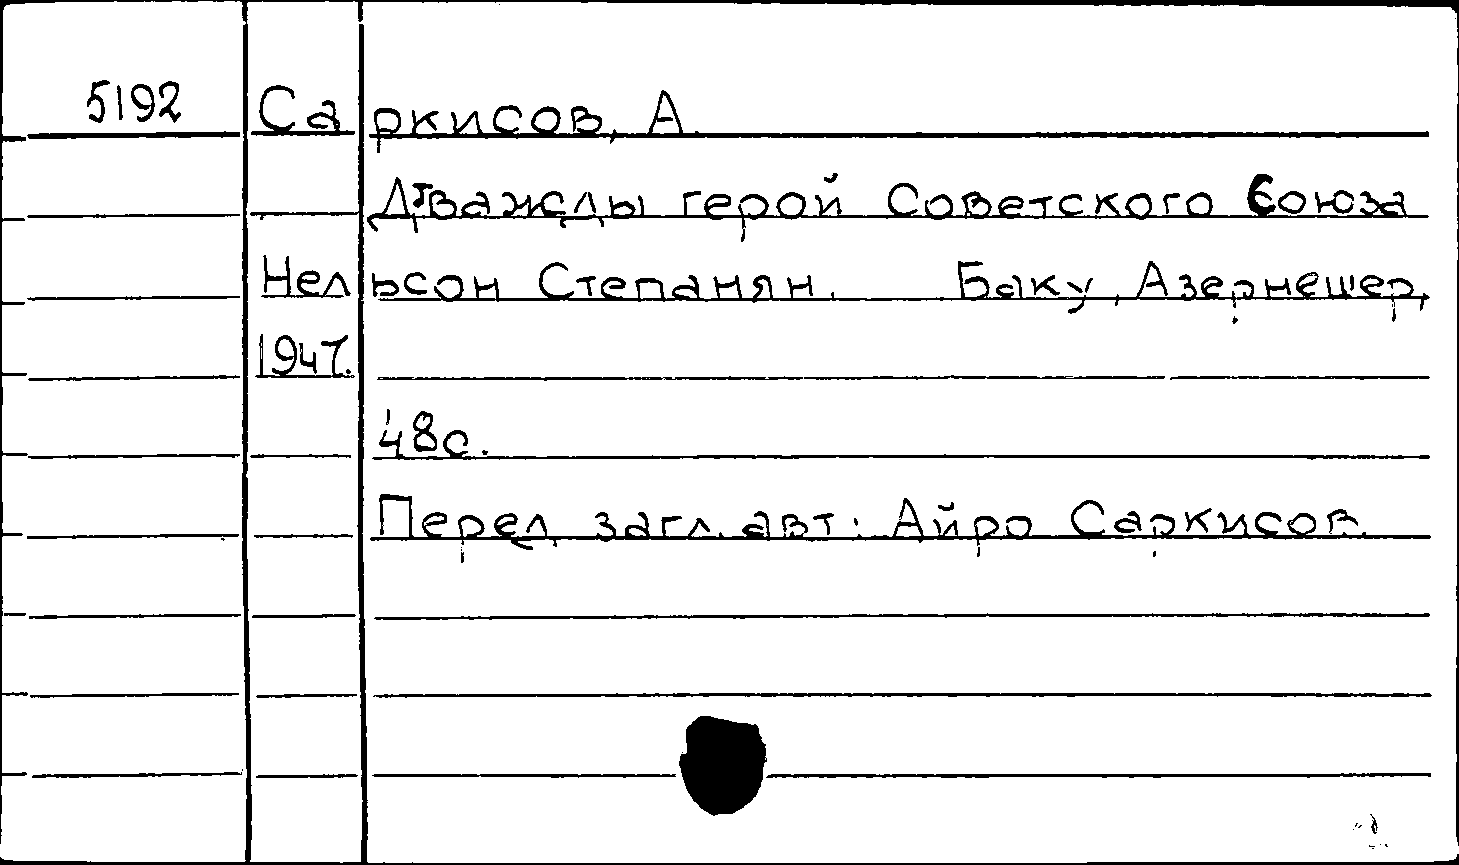 5192 Саркисов, А.
Дважды герой Советского Союза
Нельсон Степанян. Баку, Азернешер,
1947.
48с.
Перед загл. авт: Айро Саркисов.